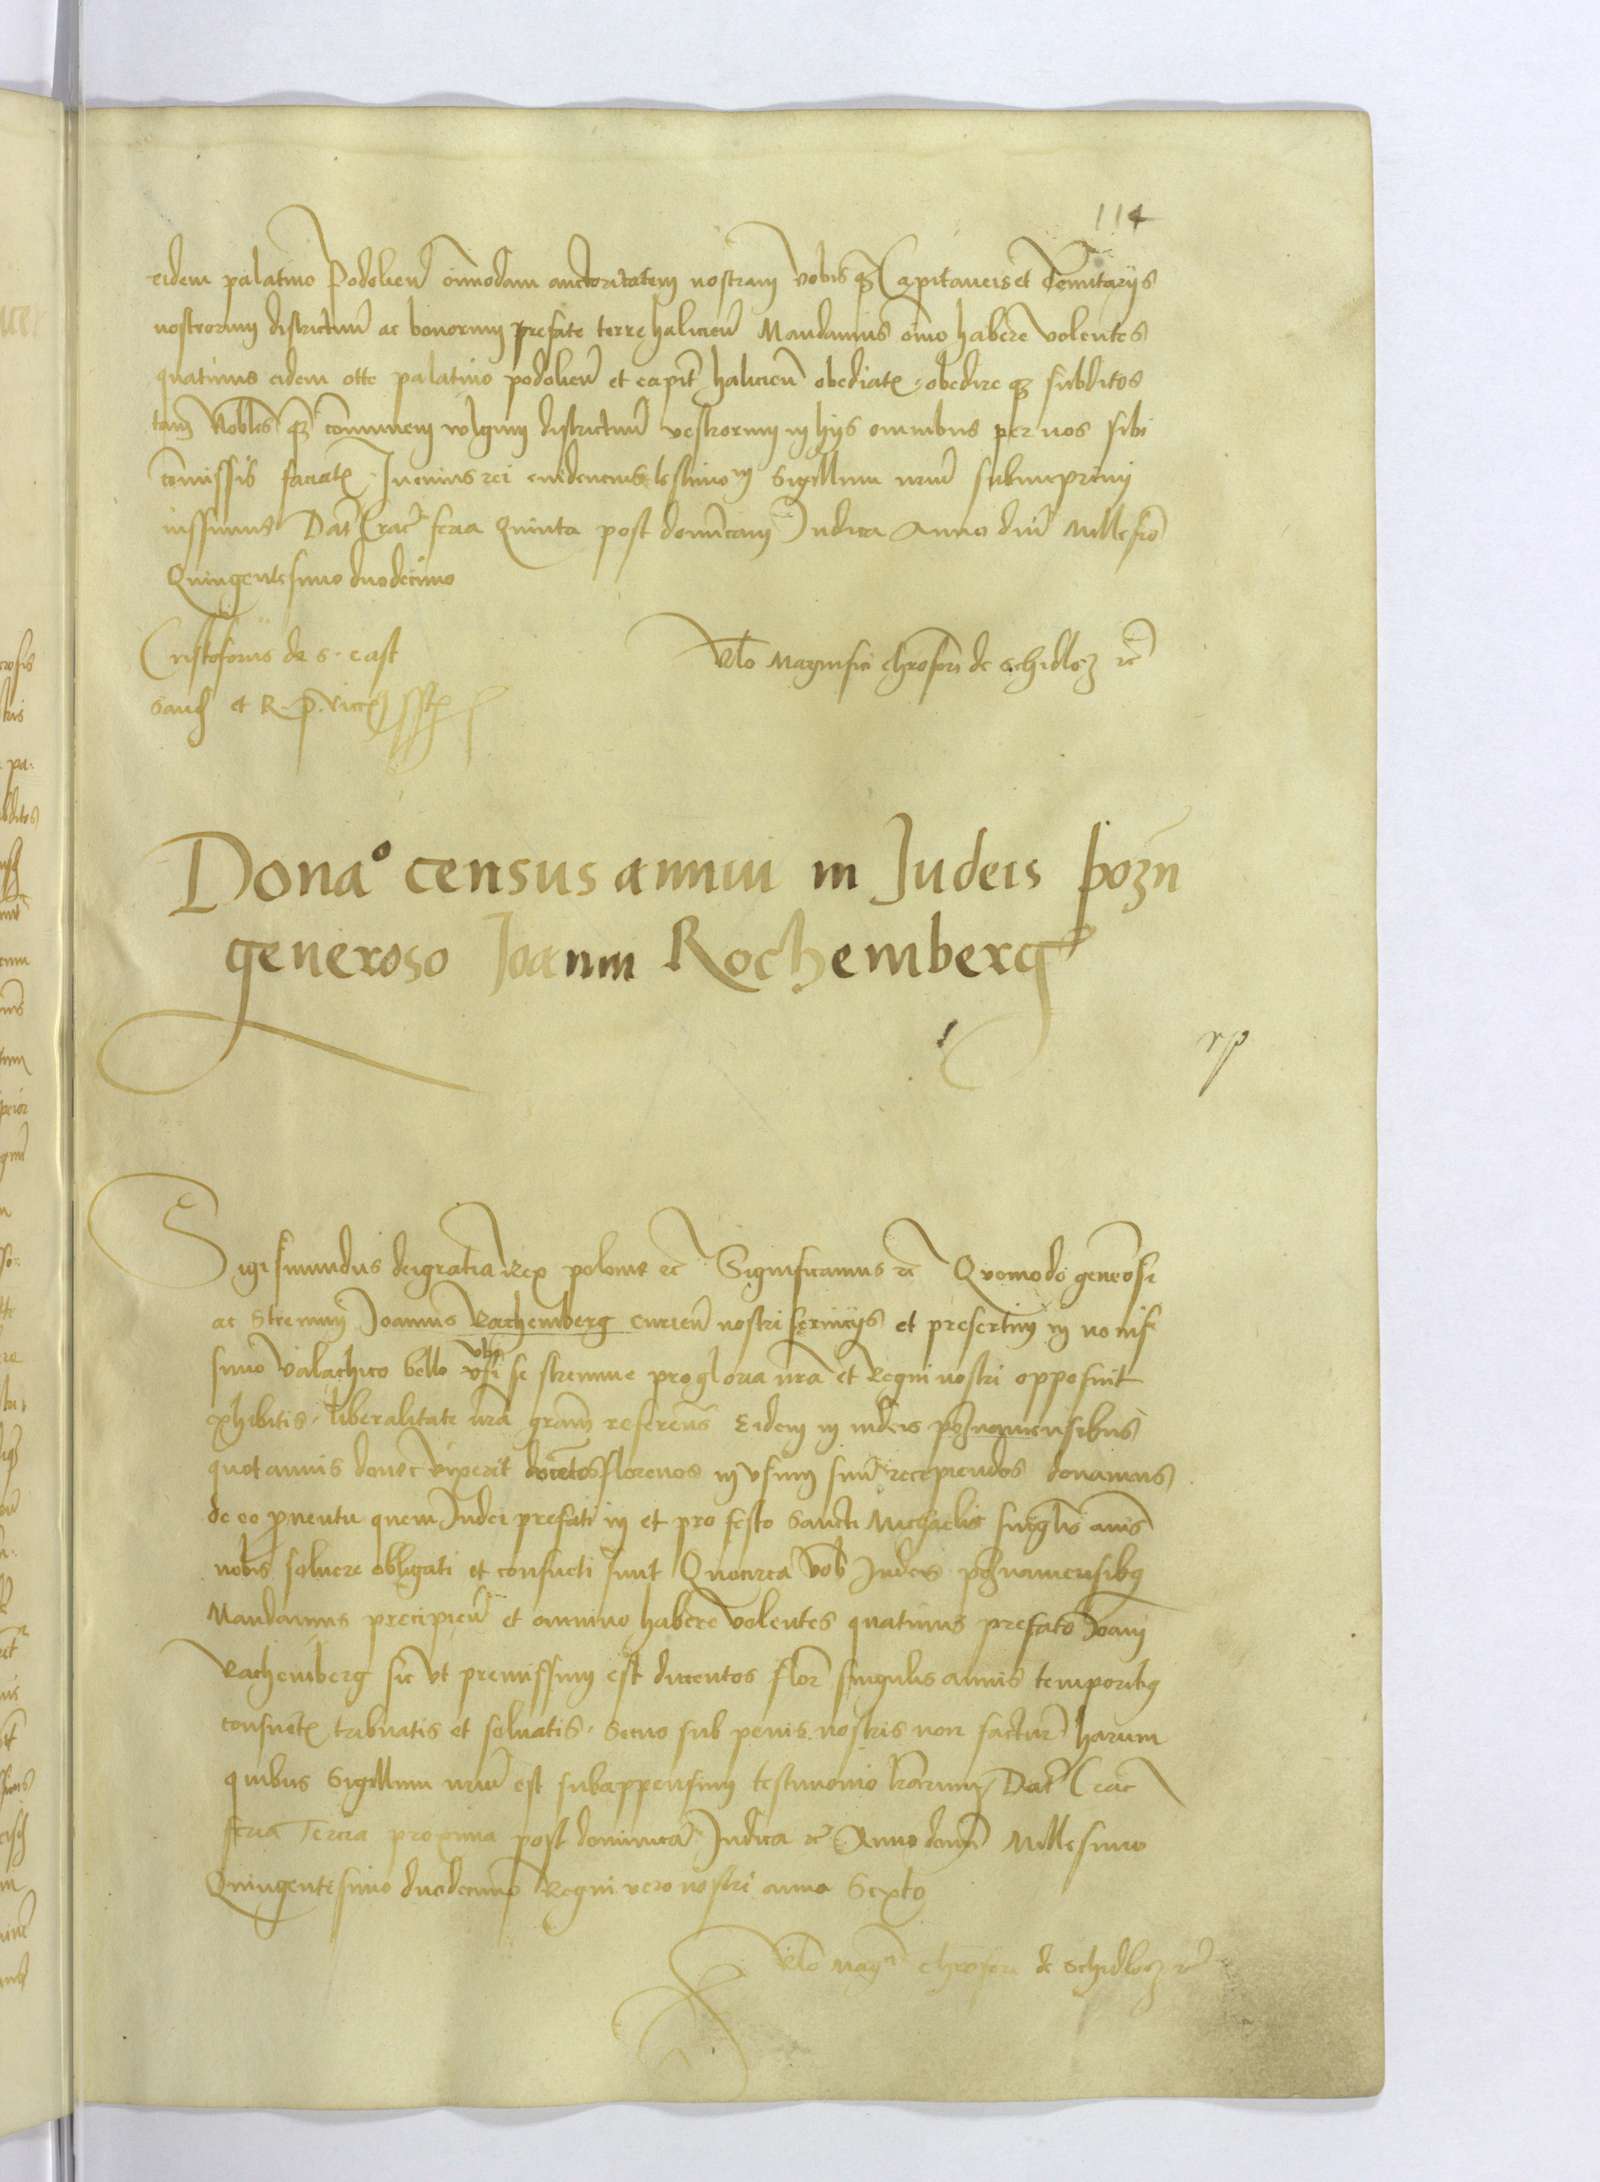 114
eidem palatino Podolien̄ om̄modam auctoritatem nostram vobis qȝ Capitaneis et Tenutarijs
nostrorum districtuū ac bonorum prefate terre halicien̄ Mandamus om̄o habere volentes
quatinus eidem otte palatino podolien̄ et capit̄ halicien̄ obediatꝭ obedire qȝ subditos
tam Nobiles qȝ com̄unem wlgum districtuū vestrorum in hijs omnibus per nos sibi
com̄issis faciatꝭ In cuius rei evidencius testimoᵐ Sigillum nrūm subimprimi
iussimus Dat̄ Crac̄ feria Quinta post dominicam Iudica Anno dni̅ Millesīo
Quingentesimo duodecimo
Cristoforus de S. cast
Sand et R. p. vicecꝭ ssꝭ
Rlo Magnifici Chrosori de Schidlocz rc̄
Dona° census annui in Judeis pozn̄
generoso Joanni Rochemberg
rp
Sigismundus dei gratia Rex polonie rc̄ Significamus rc̄ Quomodo generosi
ac Strenuj Joannis Rachemberg curien̄ nostri serviciis et presertim in novis
simo valachico bello vbi se strenue pro gloria nrā et Regni nostri opposuit
exhibitis, liberalitate nrā gram̄ referen̄s Eidem in iudeis poznaniensibus
quotannis donec vixerit ducētos florenos in vsum suū recepiendos donamus
de eo proventu quem Iudei prefati in et pro festo Sancti Michaelis singlis annis
nobis solvere obligati et consueti sunt Quocirca vob Iudeis poznaniensibꝫ
Mandamus precipien̄ et omnino habere volentes quatinus prefato Ioanj
Rachemberg sic vt premissum est ducentos flor̄ singulis annis temporibꝫ
consuetꝭ tribuatis et solvatis. Secus sub penis nostris non factur̄ harum
quibus Sigillum nrūm est subappensum testimonio lrārum Dat̄ Crac̄
feria Tercia proxima post dominicā Iudica rc̄ Anno domi̅ Millesimo
Quingentesimo duodecimo Regni vero nostri anno Sexto
Rlo Magci Chrosori de Schidlocz rc̄